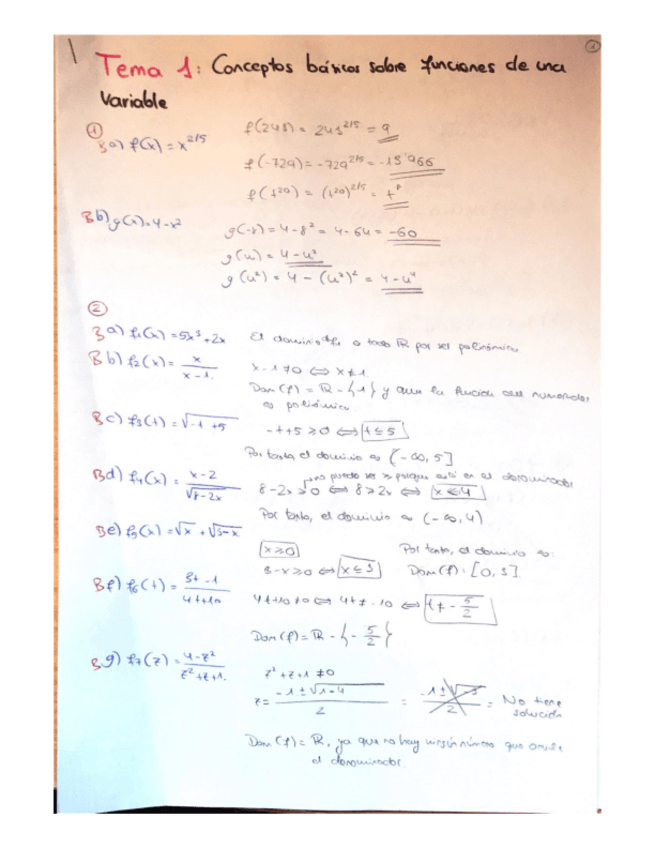 1
Tema 1: Conceptos básicos sobre funciones de una
Variable
①
Ba) f(x) = x^2/5 f(243) = 243^2/5 = 9
f(-729) = -729^2/5 = -13'966
f(t^20) = (t^20)^2/5 = t^8
Bb) g(x)=4-x² g(-8) = 4-8² = 4-64 = -60
g(u) = 4-u²
g(u²) = 4-(u²)² = 4-u⁴
②
Ba) f1(x) = 5x³+2x El dominio f1 es todo R por ser polinómica
Bb) f2(x) = x/(x-1). x-1≠0 ⟺ x≠1
Dom(f) = R-{1} y que la función del numerador
es polinómica.
Bc) f3(t) = √-t+5 -t+5≥0 ⟺ t≤5
Por tanto el dominio es (-∞,5]
Bd) f4(x) = (x-2)/√8-2x no puede ser = porque está en el denominador
8-2x≥0 ⟺ 8≥2x ⟺ x≤4
Por tanto, el dominio es (-∞,4)
Be) f5(x) = √x + √3-x x≥0 Por tanto, el dominio es:
3-x≥0 ⟺ x≤3 Dom(f): [0,3]
Bf) f6(t) = (3t-1)/(4t+10) 4t+10≠0 ⟺ 4t≠-10 ⟺ t≠-5/2
Dom(f) = R-{-5/2}
Bg) f7(z) = (4-z²)/(z²+z+1). z²+z+1≠0
z = (-1±√1-4)/2 = (-1±√-3)/2 = No tiene
solución
Dom(f) = R, ya que no hay ningún número que anule
el denominador.